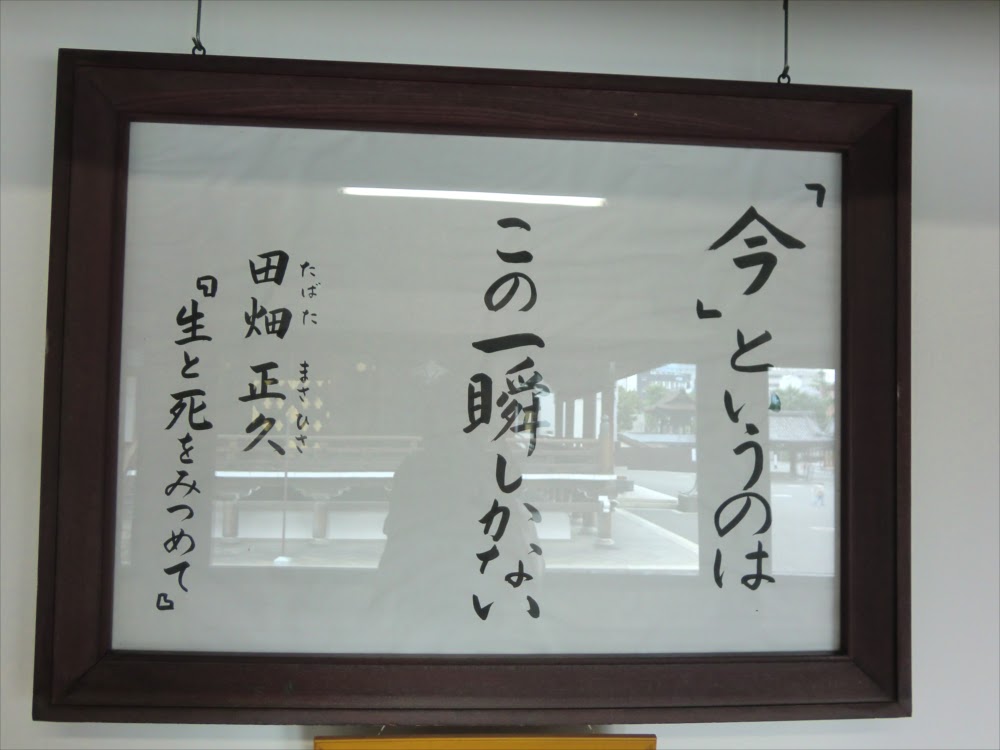 「今」というのは
この一瞬しかない
田畑 正久
たばた まさひさ
『生と死をみつめて』